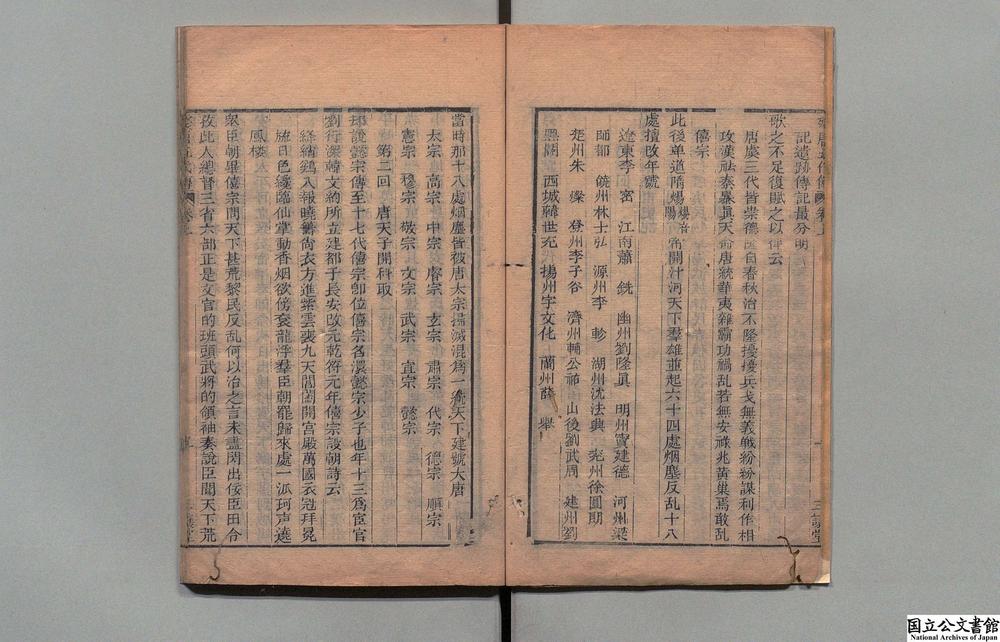 記遺跡傳記最分明
歌之不足復賦之以律云
唐虞三代皆崇德自春秋治不隆擾擾兵戈無義戰紛紛謀利作相
攻漢祚秦暴眞天命唐統華夷雜霸功禍乱若無安祿兆黃巢焉敢乱
僖宗
此後单道隋煬帝開汴河天下羣雄並起六十四處烟塵反乱十八
處擅改年號
遼東李密 江南蕭銑 幽州劉隆眞 明州竇建德 河州梁
師都 饒州林士弘 源州李軫 湖州沈法典 兖州徐圓朗
楚州朱粲 登州李子谷 濟州輔公祏 山後劉武周 建州劉
黑闥 西城韓世充 揚州宇文化 蘭州薛舉
當時那十八處烟塵皆被唐太宗掃滅混爲一統天下建號大唐
太宗 高宗 中宗 睿宗 玄宗 肅宗 代宗 德宗 順宗
憲宗 穆宗 敬宗 文宗 武宗 宣宗 懿宗
第二回 唐天子開科取
却說懿宗傳至十七代僖宗卽位僖宗名儇懿宗少子也年十三爲宦官
劉行深韓文約所立建都于長安改元乾符元年僖宗設朝詩云
絳幘鷄人報曉籌尚衣方進紫雲裘九天閶闔開宮殿萬國衣冠拜冕
旒日色纔臨仙掌動香烟欲傍袞龍浮羣臣朝罷歸來處一派珂聲遶
鳳樓
衆臣朝畢僖宗問天下甚荒黎民反乱何以治之言未盡閃出佞臣田令
孜此人總督三省六部正是文官的班頭武將的領袖奏說臣聞天下荒
国立公文書館
National Archives of Japan